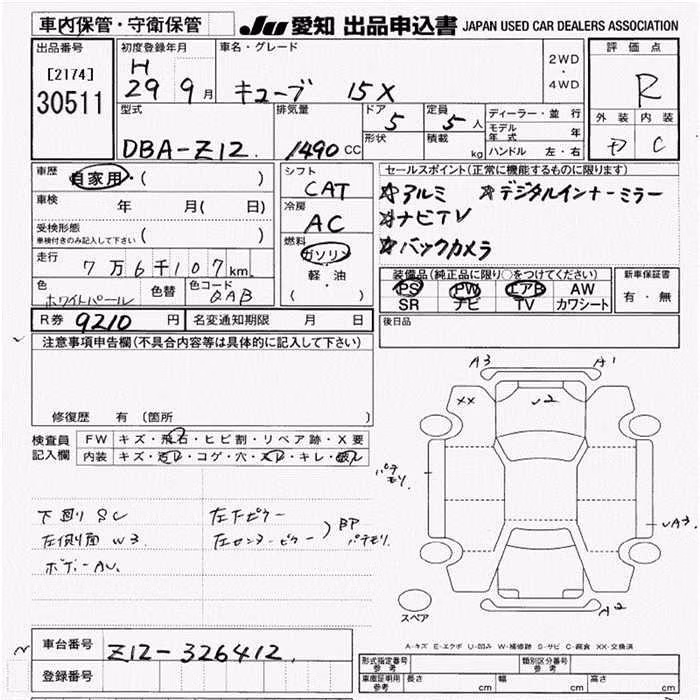 車内保管・守衛保管
JU 愛知 出品申込書 JAPAN USED CAR DEALERS ASSOCIATION
出品番号
[2174]
30511
初度登録年月
H
29 9 月
車名・グレード
キューブ 15X
2WD
・
4WD
評価点
R
外装 内装
C
型式
DBA-Z12
排気量
1490 CC
ドア
5
形状
定員
5 人
積載
kg
ディーラー・並行
モデル年式 年
ハンドル 左・右
車歴
自家用・( )
車検 年 月( 日)
受検形態
車検付きのみ記入して下さい ( )
走行
7万6千107 km
色
ホワイトパール
色替
色コード
QAB
シフト
CAT
冷房
AC
燃料
ガソリン
軽油
( )
セールスポイント(正常に機能するものに限ります)
☆アルミ ☆デジタルインナーミラー
☆ナビTV
☆バックカメラ
装備品(純正品に限り○をつけてください)
PS PW エアB AW
SR ナビ TV カワシート
新車保証書
有・無
R券 9210 円
名変通知期限 月 日
後日品
注意事項申告欄(不具合内容等は具体的に記入して下さい)
修復歴 有 (箇所 )
検査員
記入欄
FW キズ・飛石・ヒビ割・リペア跡・X要
内装 キズ・汚レ・コゲ・穴・スレ・キレ・破レ
下回り SC
左側面 W3.
ボデーAU.
左下ピラー
左センターピラー
BP
パテモリ.
A3
A1
XX
U2
パテモリ.
UA3
A2
スペア
A-キズ E-エクボ U-凹み W-補修跡 S-サビ C-腐食 XX-交換済
車台番号
Z12-326412
登録番号
形式指定番号
参考
類別区分番号
参考
車庫証明用
参考
長さ cm
幅 cm
高さ cm